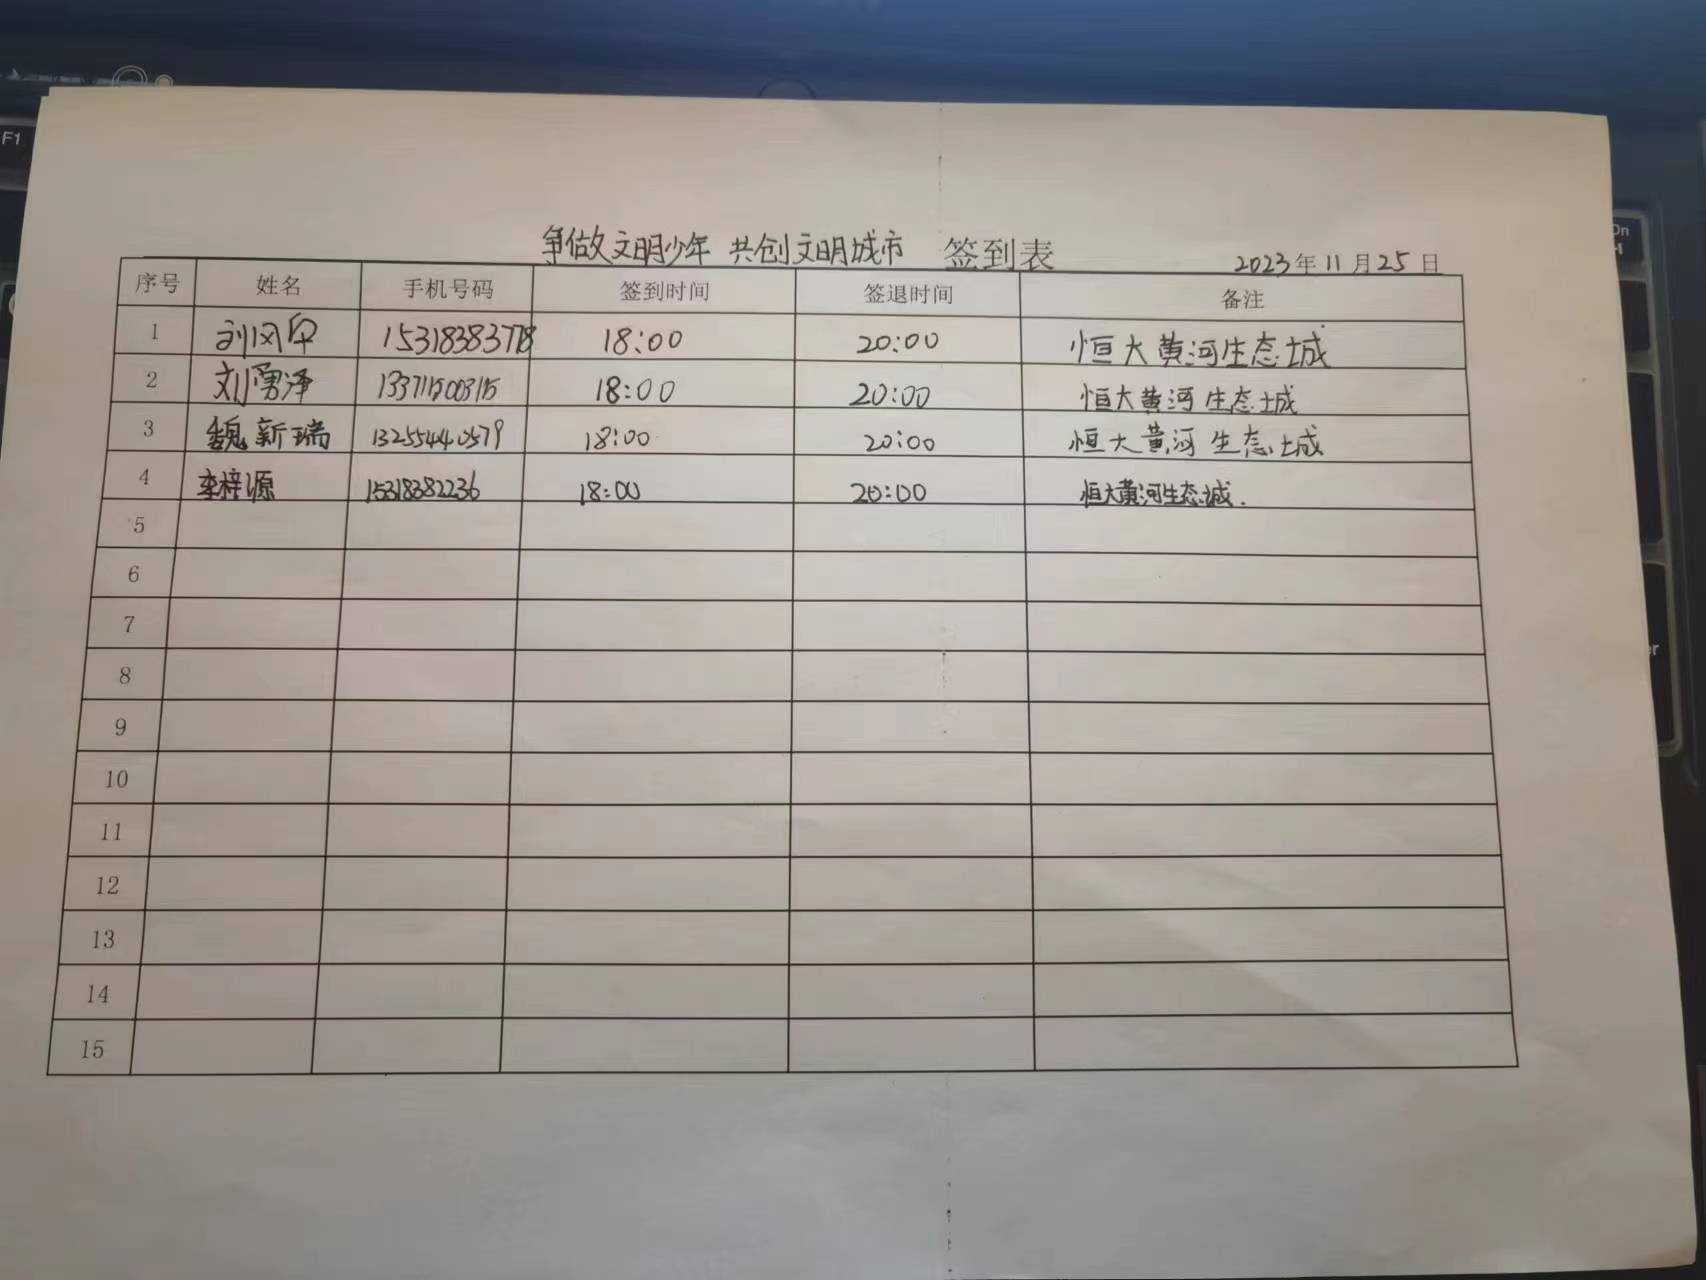 F1
争做文明少年 共创文明城市 签到表
2023年11月25日
序号 姓名 手机号码 签到时间 签退时间 备注
1 刘风 15318383778 18:00 20:00 恒大黄河生态城
2 刘勇泽 133711500315 18:00 20:00 恒大黄河生态城
3 魏新瑞 13255440579 18:00 20:00 恒大黄河生态城
4 李梓源 15318382236 18:00 20:00 恒大黄河生态城.
5
6
7
8
9
10
11
12
13
14
15